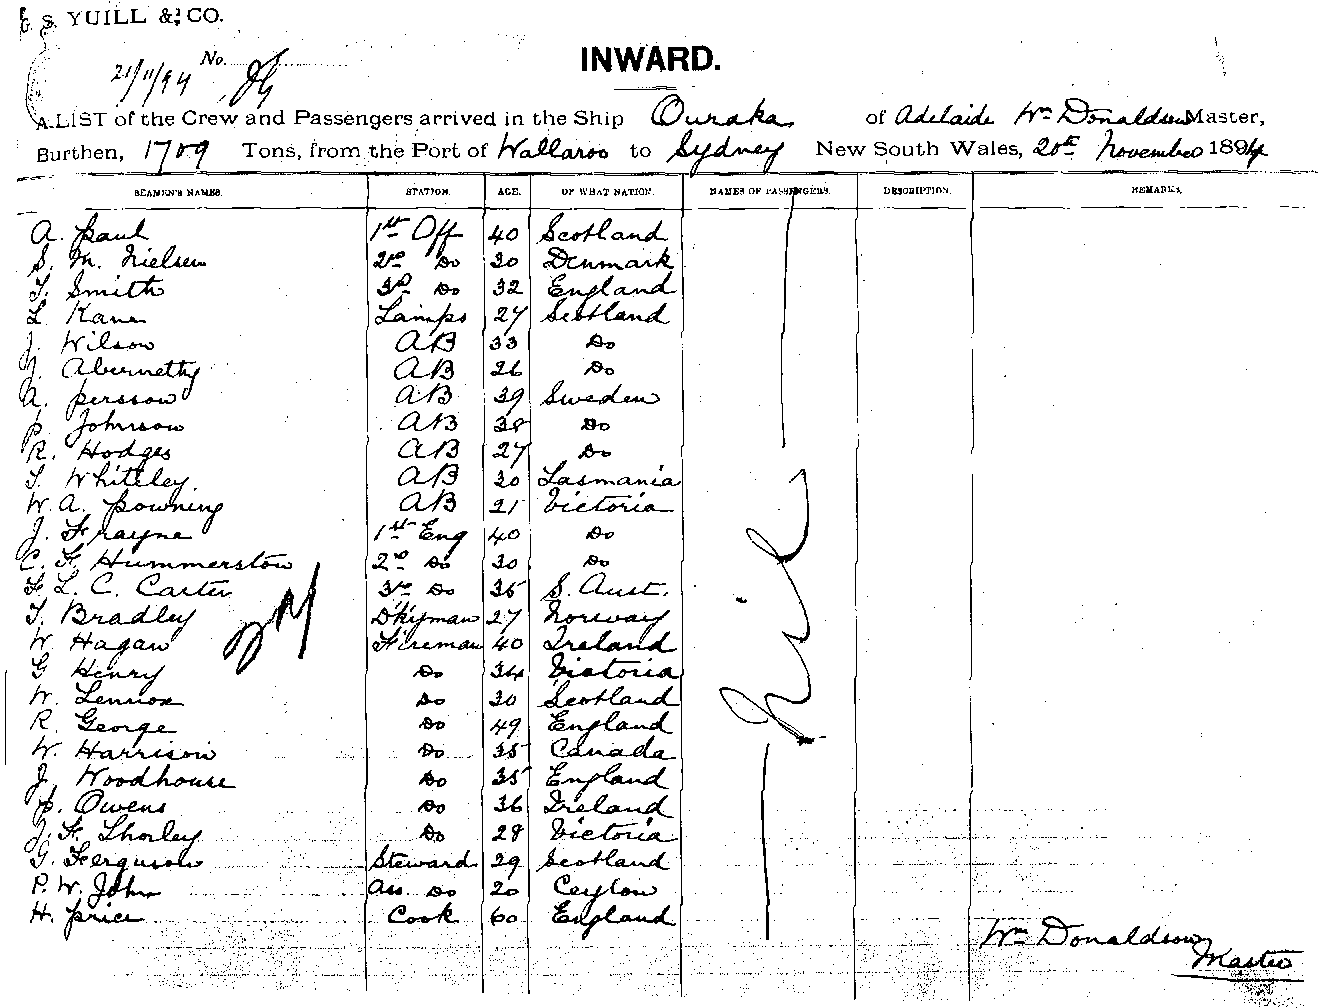 G. S. YUILL & CO.
No.
21/11/94
INWARD.
A LIST of the Crew and Passengers arrived in the Ship Ouraka of Adelaide Wm Donaldson Master,
Burthen, 1709 Tons, from the Port of Wallaroo to Sydney New South Wales, 20th November 1894
SEAMEN'S NAMES. STATION. AGE. OF WHAT NATION. NAMES OF PASSENGERS. DESCRIPTION. REMARKS.
A. Paul 1st Off 40 Scotland
S. M. Nielsen 2nd Do 30 Denmark
T. Smith 3rd Do 32 England
L. Kane Lamps 27 Scotland
J. Wilson AB 33 Do
J. Abernethy AB 26 Do
A. Persson AB 39 Sweden
P. Johnson AB 38 Do
R. Hodges AB 27 Do
T. Whiteley AB 30 Tasmania
W. A. Powning AB 21 Victoria
J. Frayne 1st Eng 40 Do
C. F. Hummerston 2nd Do 30 Do
F. L. C. Carter 3rd Do 35 S. Aust.
T. Bradley Dkyman 27 Norway
W. Hagan Fireman 40 Ireland
G. Henry Do 34 Victoria
W. Lennox Do 30 Scotland
R. George Do 49 England
W. Harrison Do 35 Canada
J. Woodhouse Do 35 England
P. Owens Do 36 Ireland
J. F. Thorley Do 28 Victoria
G. Ferguson Steward 29 Scotland
P. W. John Ass. Do 20 Ceylon
H. Price Cook 60 England
Nil
Wm Donaldson
Master